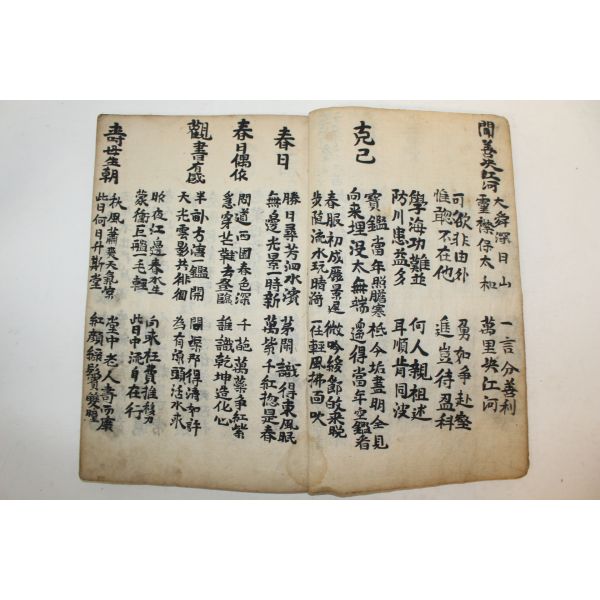 聞善决江河
大舜深日山 一言分善利
靈襟保太和 萬里决江河
可欲非由外 勇如爭赴壑
惟聰不在他 進豈待盈科
學海功難並 何人親祖述
防川患益多 耳順肯同波
克己
寶鑑當年照膽寒 祗今垢盡明全見
向來埋沒太無端 還得當年空鑑看
春服初成麗景遲 微吟緩節 來晚
步隨流水玩晴漪 一任輕風拂面吹
春日
勝日尋芳泗水濱 茅閒識得東風眠
無邊光景一時新 萬紫千紅揔是春
春日偶作
聞道西園春色深 千葩萬蘂爭紅紫
急穿芒鞋去登臨 誰識乾坤造化心
觀書有感
半畝方塘鑑開 問渠那得清如許
天光雲影共徘徊 為有源頭活水來
昨夜江邊春水生 向來枉費推移力
蒙衝巨艦一毛輕 此日中流自在行
壽母生朝
秋風蕭爽天氣凉 堂中老人壽而康
此日何日升斯堂 紅顏綠鬢雙瞳